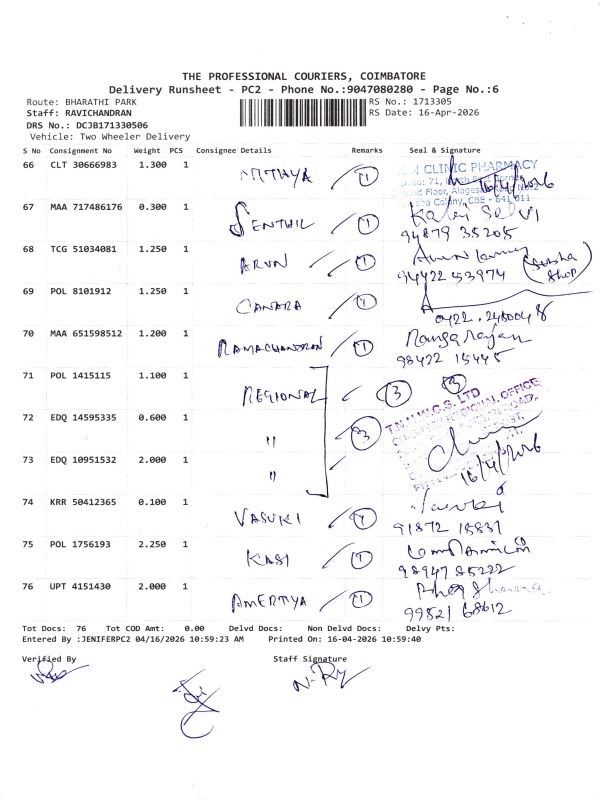 THE PROFESSIONAL COURIERS, COIMBATORE
Delivery Runsheet - PC2 - Phone No.:9047080280 - Page No.:6
Route: BHARATHI PARK
RS No.: 1713305
Staff: RAVICHANDRAN
RS Date: 16-Apr-2026
DRS No.: DCJB171330506
Vehicle: Two Wheeler Delivery
S No Consignment No Weight PCS Consignee Details Remarks Seal & Signature
66 CLT 30666983 1.300 1 NITHYA 1 CLINIC PHARMACY
16/4/2026
Colony, CBE - 641 011
67 MAA 717486176 0.300 1 SENTHIL 1 Kalai Selvi
94879 35205
68 TCG 51034081 1.250 1 ARUN 1 Arun Kumar
94422 53974 (Subha Shop)
69 POL 8101912 1.250 1 CANARA 1
0422.2480048
70 MAA 651598512 1.200 1 RAMACHANDRAN 1 Rangarajan
98422 15445
71 POL 1415115 1.100 1 REGIONAL 3 3
REGIONAL OFFICE
72 EDQ 14595335 0.600 1 " 3
73 EDQ 10951532 2.000 1 "
16/4/2026
74 KRR 50412365 0.100 1 VASUKI 1 Vasuki
91872 18831
75 POL 1756193 2.250 1 KASI 1
98947 85222
76 UPT 4151430 2.000 1 AMERTYA 1 Sharma
99521 68612
Tot Docs: 76 Tot COD Amt: 0.00 Delvd Docs: Non Delvd Docs: Delvy Pts:
Entered By :JENIFERPC2 04/16/2026 10:59:23 AM Printed On: 16-04-2026 10:59:40
Verified By Staff Signature